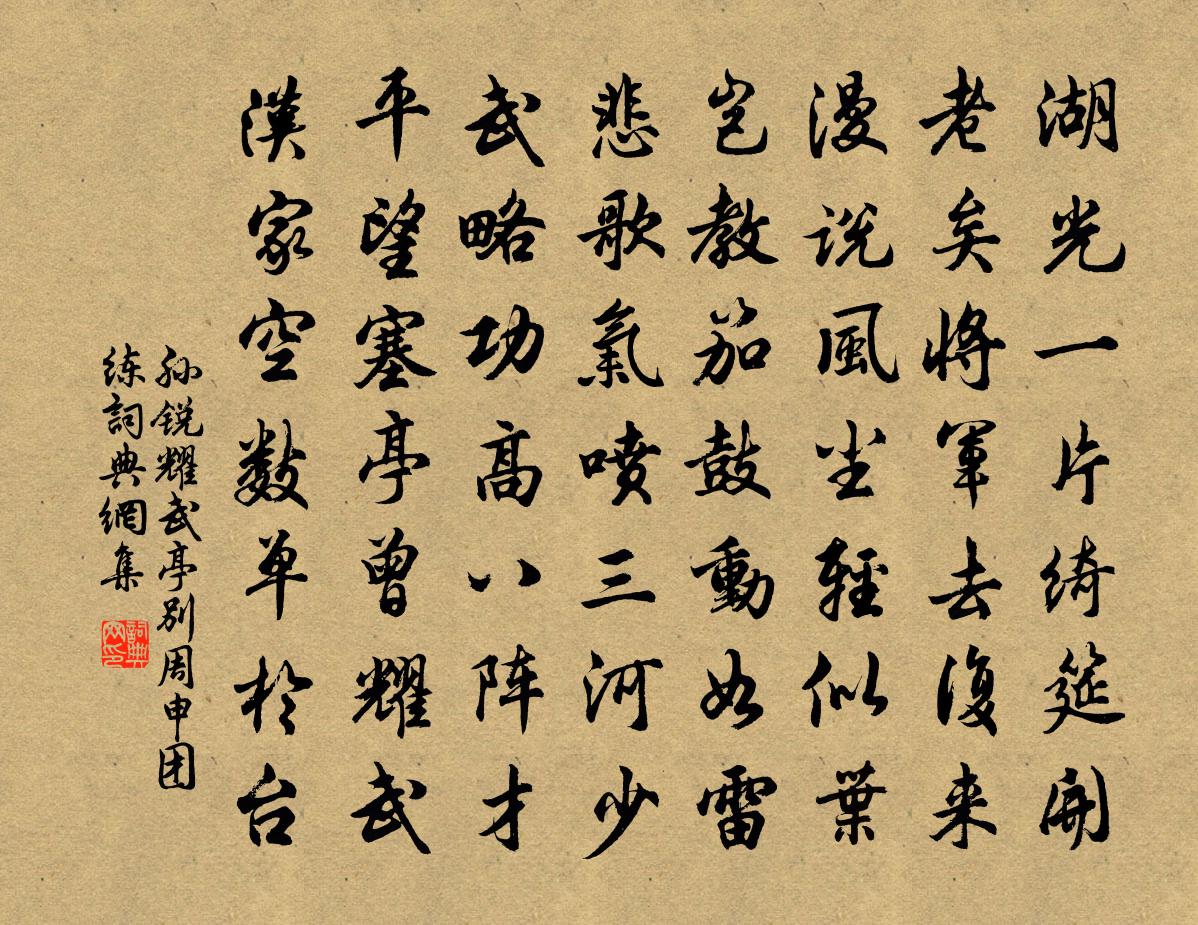 湖光一片绮筵開
老矣將軍去復来
漫说風尘輕似葉
岂教笳鼓動如雷
悲歌氣喷三河少
武略功高八阵才
平望塞亭曾耀武
漢家空数单於台
孙锐耀武亭别周申团
练詞典網集
詞典
网印